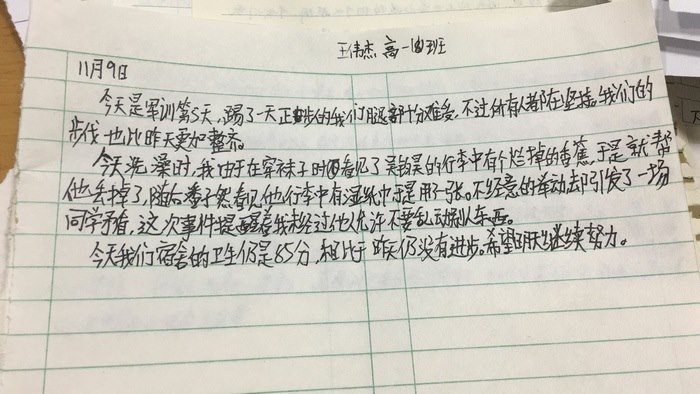 王伟杰 高一(4)班
11月9日
今天是军训第5天，踢了一天正步的我们腿部十分难受，不过所有人都在坚持。我们的
步伐也比昨天更加整齐。
今天洗澡时，我由于在穿袜子时看见了吴钧昊的行李中有个烂掉的香蕉，于是就帮
他丢掉了，随后潘子然看见他行李中有湿纸巾于是用了一张。不经意的举动却引发了一场
同学矛盾，这次事件提醒着我未经过他人允许不要乱动别人东西。
今天我们宿舍的卫生仍是85分，相比于昨天仍没有进步。希望明天继续努力。